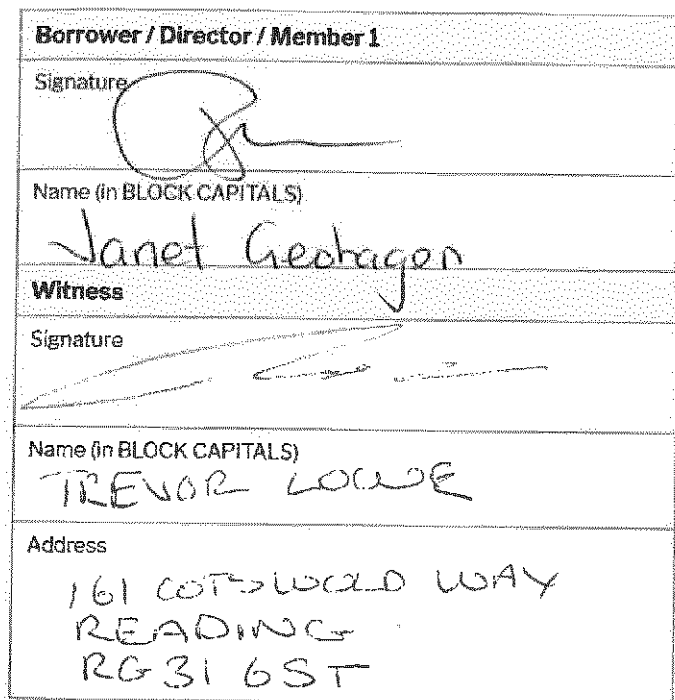 Borrower / Director / Member 1
Signature
Name (in BLOCK CAPITALS)
Janet Geohagon
Witness
Signature
Name (in BLOCK CAPITALS)
TREVOR LOWE
Address
161 COTSWOLD WAY
READING
RG31 6ST